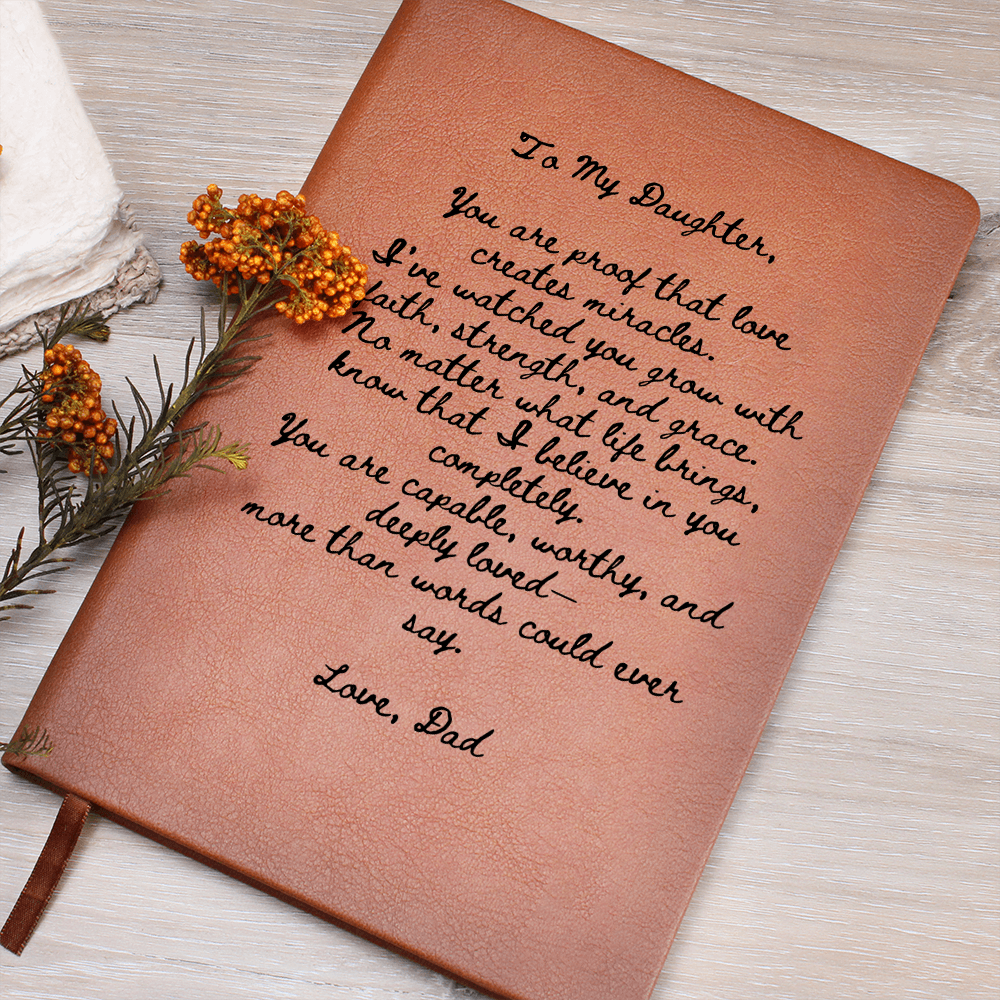 To My Daughter,
You are proof that love
creates miracles.
I've watched you grow with
faith, strength, and grace.
No matter what life brings,
know that I believe in you
completely.
You are capable, worthy, and
deeply loved—
more than words could ever
say.
Love, Dad